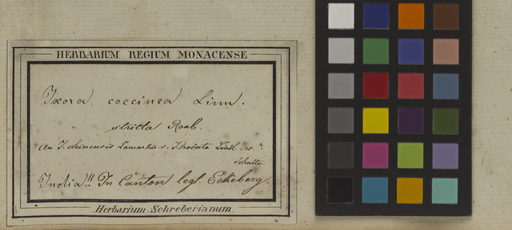 HERBARIUM REGIUM MONACENSE
Ixora coccinea Linn.
" stricta Roxb.
an I. chinensis Lamarkii s. I. Link.
Schultes.
India!!! In Canton legt. Eckeberg.
Herbarium Schreberianum